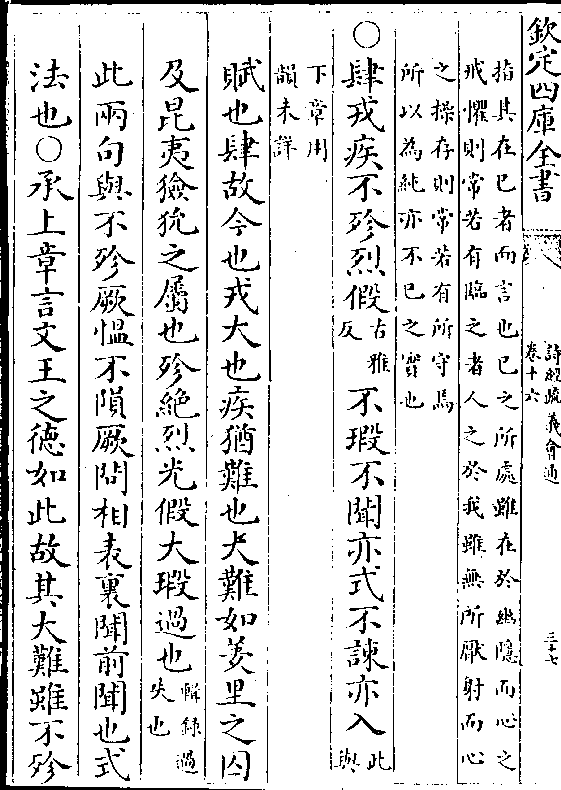 欽定四庫全書
詩經疏義會通
卷十六
三十七
指其在已者而言也已之所處雖在於幽隱而心之
戒懼則常若有臨之者人之於我雖無所厭射而心
之操存則常若有所守焉
所以為純亦不已之實也
○肆戎疾不殄烈假古雅反不瑕不聞亦式不諫亦入此與
下章用
韻未詳
賦也肆故今也戎大也疾猶難也大難如羑里之囚
及昆夷獫狁之屬也殄絶烈光假大瑕過也輯録過失也
此兩句與不殄厥愠不隕厥問相表裏聞前聞也式
法也○承上章言文王之德如此故其大難雖不殄